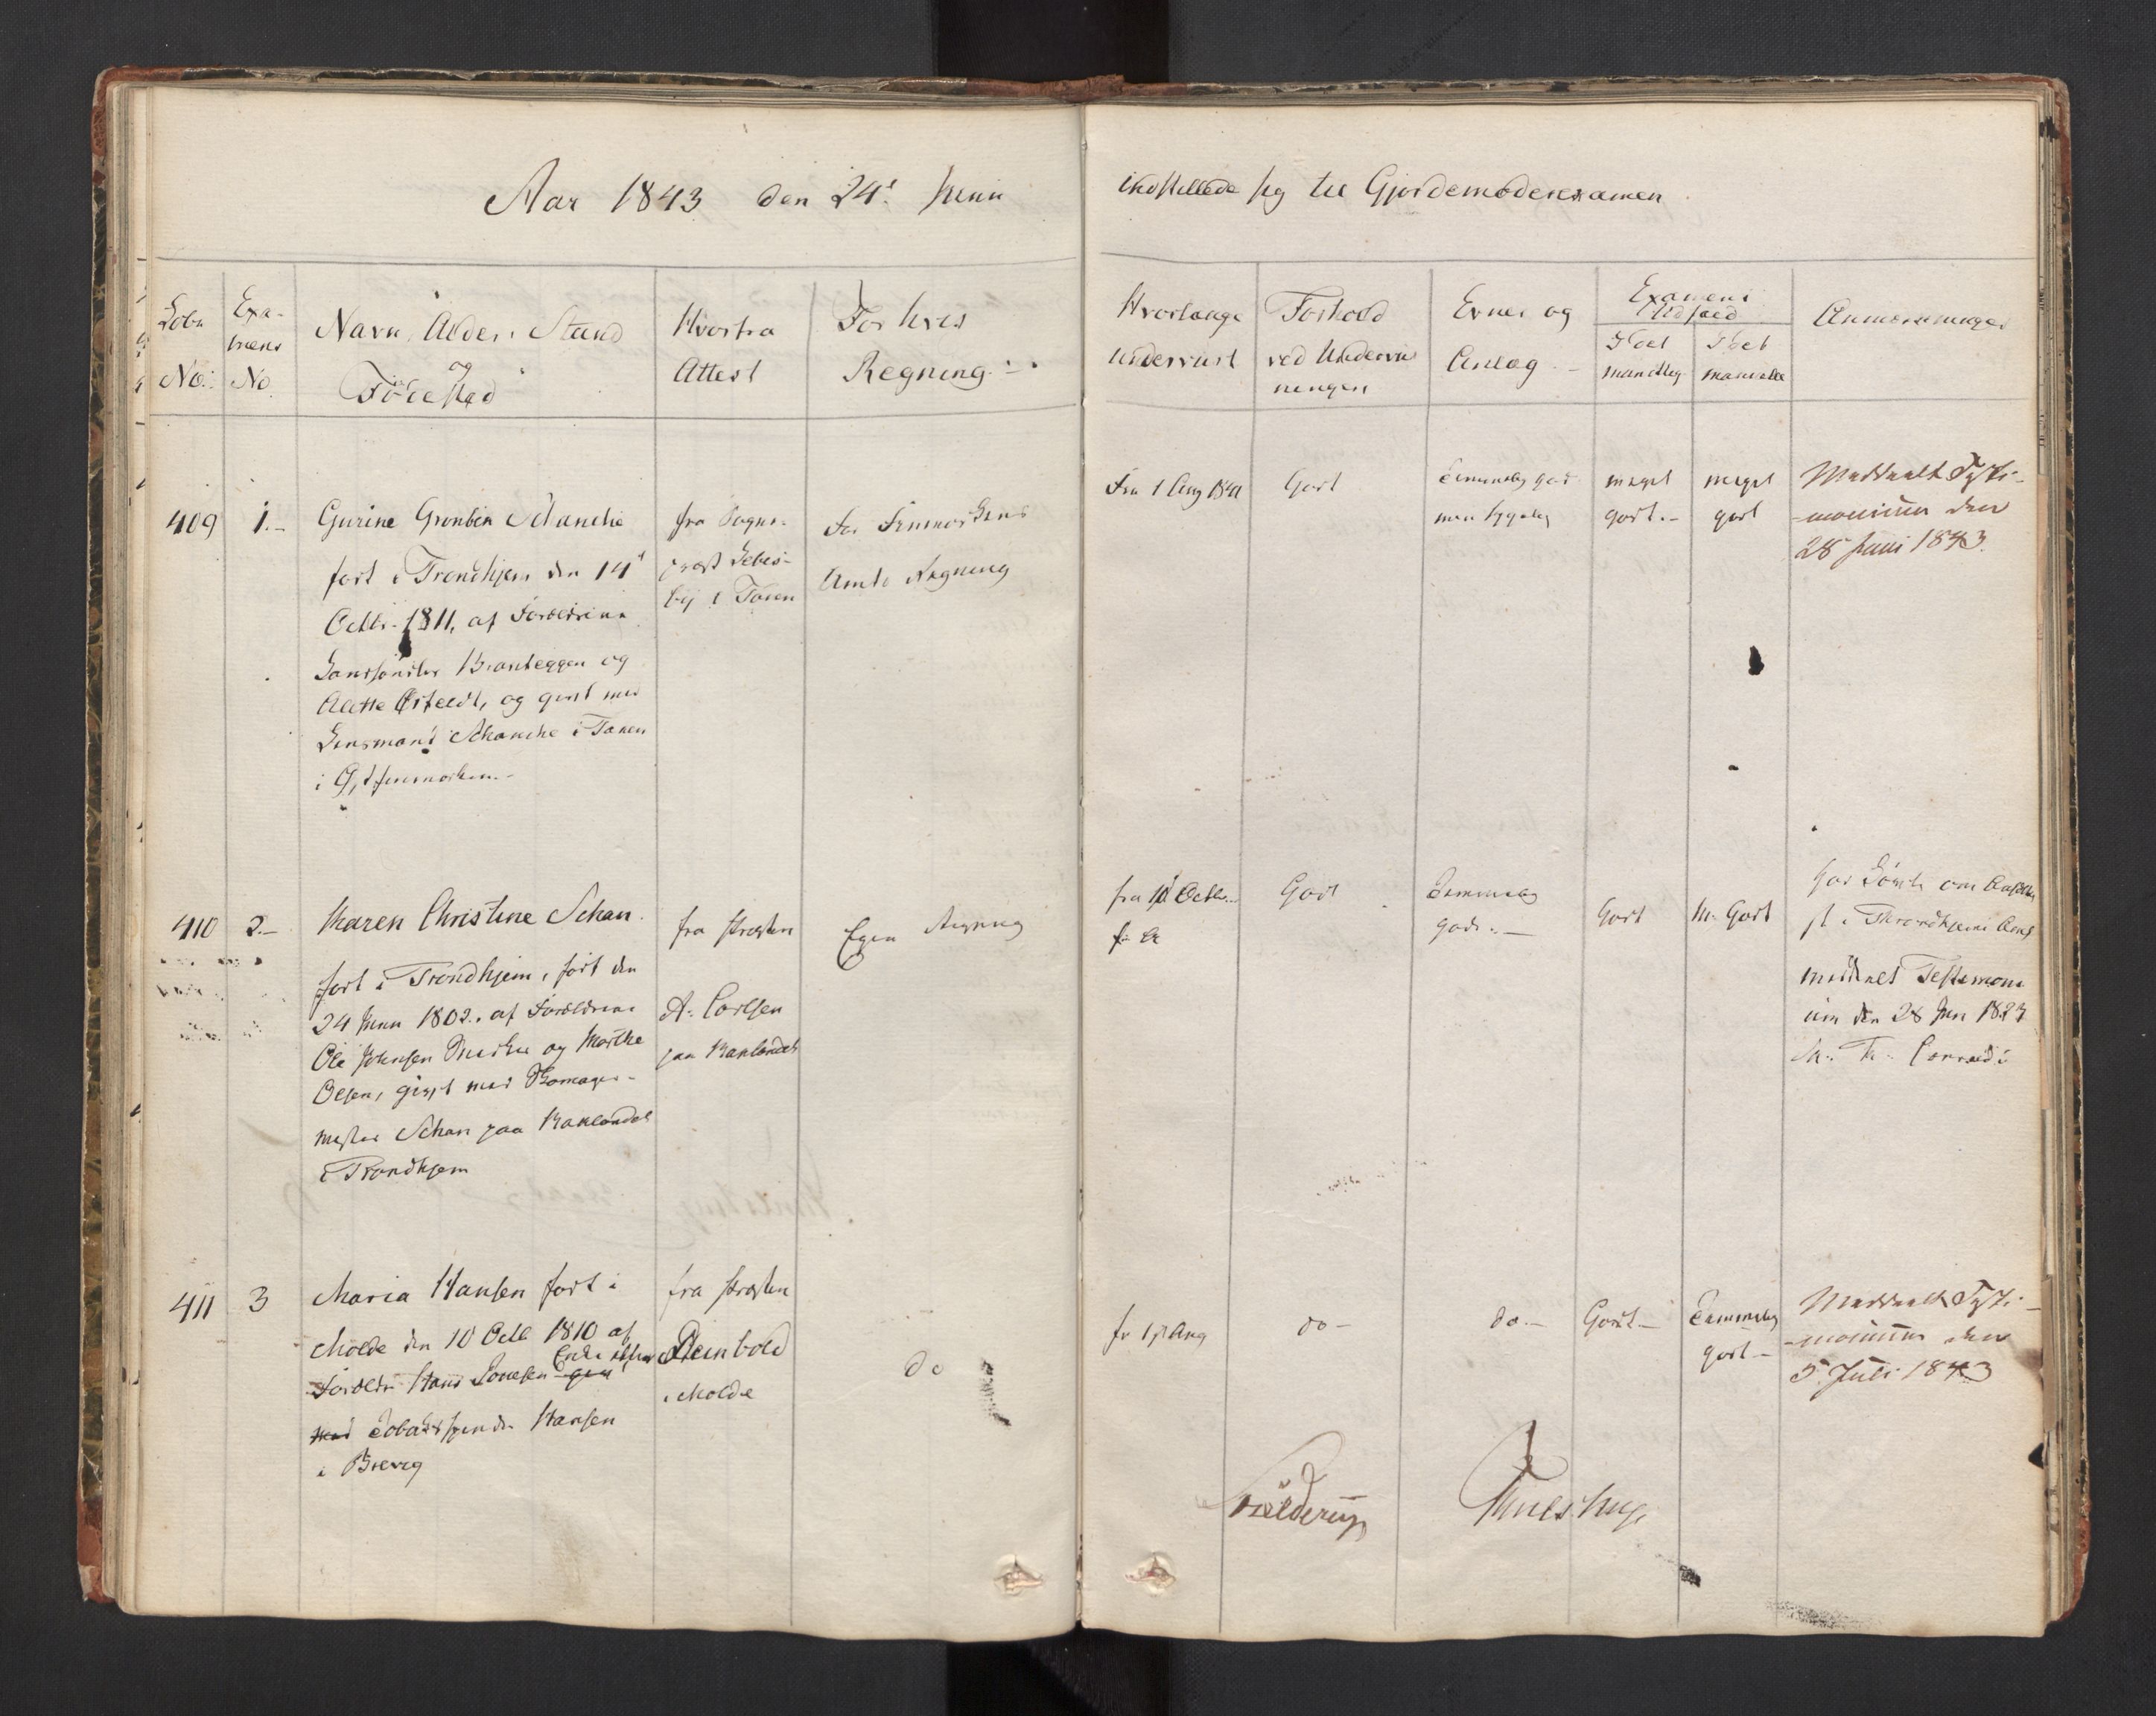 Aar 1843 den 24' Juni
indstillede sig til Gjordemoderexamen
Løbe
No:
Exa-
mens
No.
Navn, Alder, Stand
og
Födested
Hvorfra
Attest
For hves
Regning
Hvorlænge
undervist
Forhold
ved Undervis
ningen
Evner og
Anlæg
Examens
Udfald
I det
mundtlig
I det
manuelle
Anmærkninger
409
1.-
Gurine Grønbek Schanche
født i Trondhjem den 14'
Octbr. 1811, af Forældrene
og
Alette, og givt med
Lensmand Schanche i Tanen
i Østfinmarken.-
fra Sogne-
præst
i Tanen
For Finmarkens
Amts Regning
Fra 1 Aug 1841
Godt
Temmelig god
men sygelig
meget
godt.-
meget
godt
Meddeelt Testi-
-monium den
28 Juni 1843.
410
2.-
Maren Christine Schan
født i Trondhjem, født den
24 Juni 1802. af Forældrene
Ole Johnsen og Marthe
Olsen, givt med Skomager-
mester Schan paa Baklandet
i Trondhjem
fra Præsten
A. Carlsen
paa Baklandet
Egen Regning
fra Octbr.
Godt
Temmelig
god.-
Godt
M. Godt
har Søgt om Ansættelse
i Throndhjems Amt
meddelt Testimoni
um den 28 Jun 1843
411
3
Maria Hansen født i
Molde den 10 Octb 1810 af
Forældr Hans Enke efter
med Tobaksspinder Hansen
i Brevig
fra Præsten
Steinbold
i Molde
do
fr 1st Aug
do-
do.-
Godt-
Temmelig
godt-
Meddeelt Testi-
-monium den
5 Juli 1843